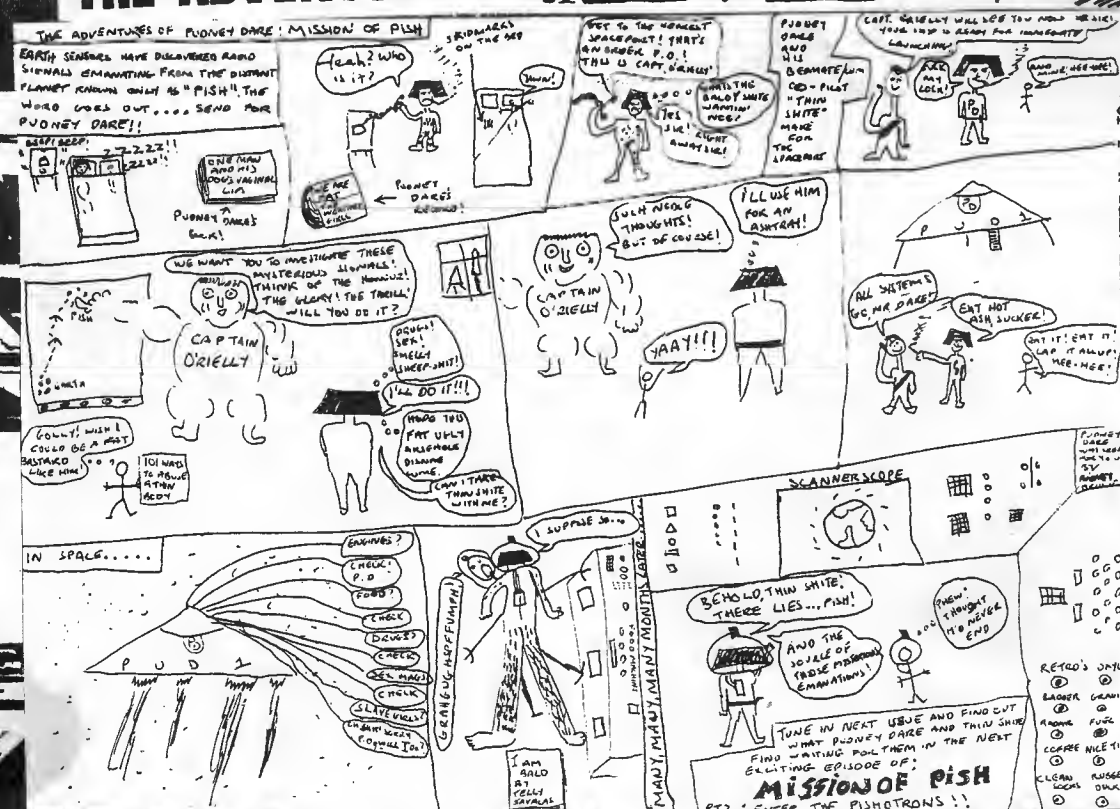 THE ADVENTURES OF PUDNEY DARE! MISSION OF PISH
EARTH SENSORS HAVE DISCOVERED RADIO
SIGNALS EMANATING FROM THE DISTANT
PLANET KNOWN ONLY AS "PISH". THE
WORD GOES OUT.... SEND FOR
PUDNEY DARE!!
BEEP! BEEP!
ZZZZZZ!!
ONE MAN
AND HIS
DOG'S VAGINAL
LIPS
PUDNEY DARE'S
BOOK!
Yeah? WHO
IS IT?
SKIDMARKS
ON THE BED
YAWN!
WE ARE
AT
GIRLS
PUDNEY
DARE'S
RECORD!
GET TO THE NEAREST
SPACEPORT! THAT'S
AN ORDER P.D.!
THIS IS CAPT. O'RIELLY!
WHAT'S THE
BALDY SHITE
WANTIN'
YES
SIR! RIGHT
AWAY SIR!
PUDNEY
DARE
AND
HIS
BEDMATE/
CO-PILOT
"THIN
SHITE"
MAKE
FOR
THE
SPACEPORT
CAPT. O'RIELLY WILL SEE YOU NOW
YOUR SHIP IS READY FOR IMMEDIATE
LAUNCHING!
MY
AND
MINE, HEE-HEE!
PISH
EARTH
WE WANT YOU TO INVESTIGATE THESE
MYSTERIOUS SIGNALS!
THINK OF THE
THE GLORY! THE THRILL!
WILL YOU DO IT?
CAPTAIN
O'RIELLY
DRUGS!
SEX!
SMELLY
SHEEP-SHIT!
I'LL DO IT!!!
HOPE THIS
FAT UGLY
ARSEHOLE
CAN I TAKE
THIN SHITE
WITH ME?
GOLLY! WISH I
COULD BE A FAT
BASTARD
LIKE HIM!
101 WAYS
TO ABUSE
A THIN
BODY
SUCH NOBLE
THOUGHTS!
BUT OF COURSE!
CAPTAIN
O'RIELLY
YAAY!!!
I'LL USE HIM
FOR AN
ASHTRAY!
P U D 1
ALL SYSTEMS
GO, MR. DARE!
EAT HOT
ASH, SUCKER!
EAT IT! EAT IT!
LAP IT ALL UP!
HEE-HEE!
IN SPACE......
P U D 1
ENGINES?
CHECK!
P.D
FOOD?
CHECK
DRUGS?
CHECK
SEX MAGS?
CHECK
SLAVE GIRLS?
I SUPPOSE SO...
I AM
BALD
BY
TELLY
SAVALAS
MANY, MANY, MANY MONTHS LATER...
SCANNERSCOPE
PUDNEY
DARE
BEHOLD, THIN SHITE!
THERE LIES... PISH!
AND THE
SOURCE OF
THOSE MYSTERIOUS
EMANATIONS!
PHEW!
THOUGHT
IT'D NEVER
END
TUNE IN NEXT ISSUE AND FIND OUT
WHAT PUDNEY DARE AND THIN SHITE
FIND WAITING FOR THEM IN THE NEXT
EXCITING EPISODE OF:
MISSION OF PISH
PT2: ENTER THE PISHOTRONS!!
RETRO'S
RADAR
FUEL
COFFEE
CLEAN
SOCKS